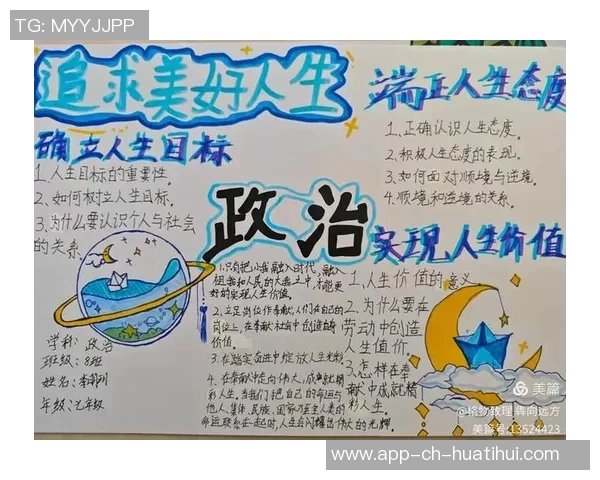 TG: MYYJJPP
追求美好人生
确立人生目标
1.人生目标的重要性。
2.如何树立人生目标。
3.为什么要认识个人与社会
的关系
学科:政治
班级:8班
姓名:李
年级:七年级
政治
1.只有把小我融入时代,融入
祖国和人民的大我之中,才能更
好的实现人生价值。
2.立足岗位作奉献,人们在自己的
岗位上,在奉献社会中创造自身
价值。
3.在踏实奋进中绽放人生光彩
4.在奉献中走向伟大,成就精
彩人生。当我们把自己的命运与
他人、集体、民族、国家乃至全人类的
命运联系在一起时,人生会闪耀出伟大的光辉。
端正人生态度
1.正确认识人生态度。
2.积极人生态度的表现。
3.如何面对顺境与逆境。
4.顺境和逆境的关系。
实现人生价值
1.人生价值的意义
2.为什么要在
劳动中创造
人生值价。
3.怎样在奉
献中成就精
彩人生。
美篇
@格物致理 犇向远方
美篇号:13524423
www.app-ch-huatihui.com